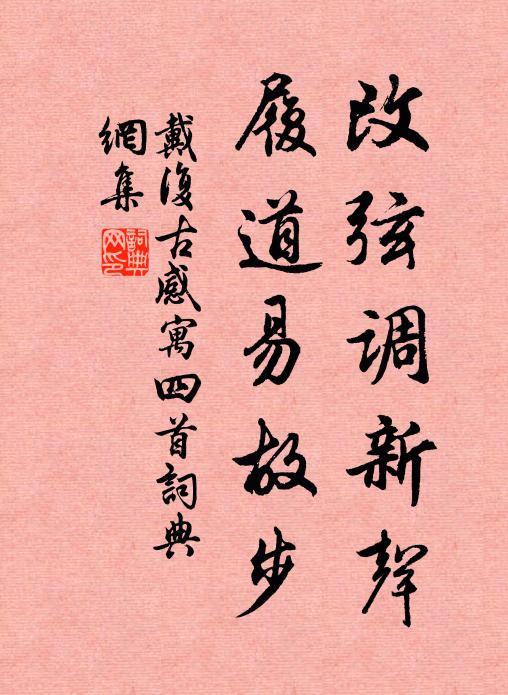 改弦調新聲
履道易故步
戴復古感寓四首詞典
網集
詞典網印